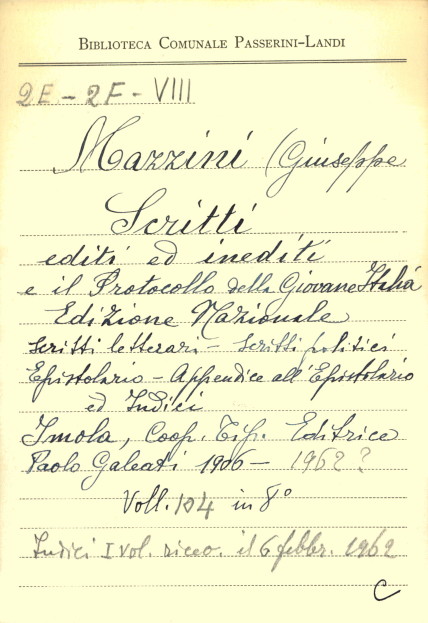 BIBLIOTECA COMUNALE PASSERINI-LANDI
2E - 2F - VIII
Mazzini (Giuseppe
Scritti
editi ed inediti
e il Protocollo della Giovane Italia
Edizione Nazionale
Scritti letterari - Scritti politici
Epistolario - Appendice all'Epistolario
ed Indici
Imola, Coop. Tip. Editrice
Paolo Galeati 1906 - 1962?
Voll. 104 in 8°
Indici I vol. ricev. il 6 febbr. 1962
C